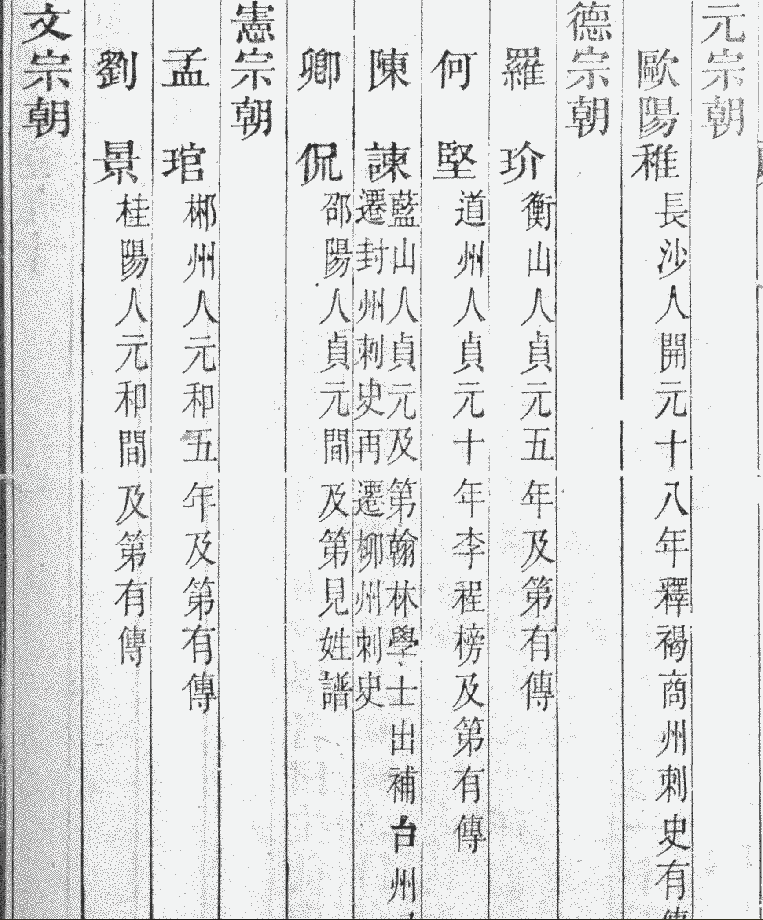 元宗朝
歐陽稚 長沙人開元十八年釋褐商州刺史有傳
德宗朝
羅玠 衡山人貞元五年及第有傳
何堅 道州人貞元十年李程榜及第有傳
陳諫 藍山人貞元及第翰林學士出補台州
遷封州刺史再遷柳州刺史
卿侃 邵陽人貞元間及第見姓譜
憲宗朝
孟琯 郴州人元和五年及第有傳
劉景 桂陽人元和間及第有傳
文宗朝